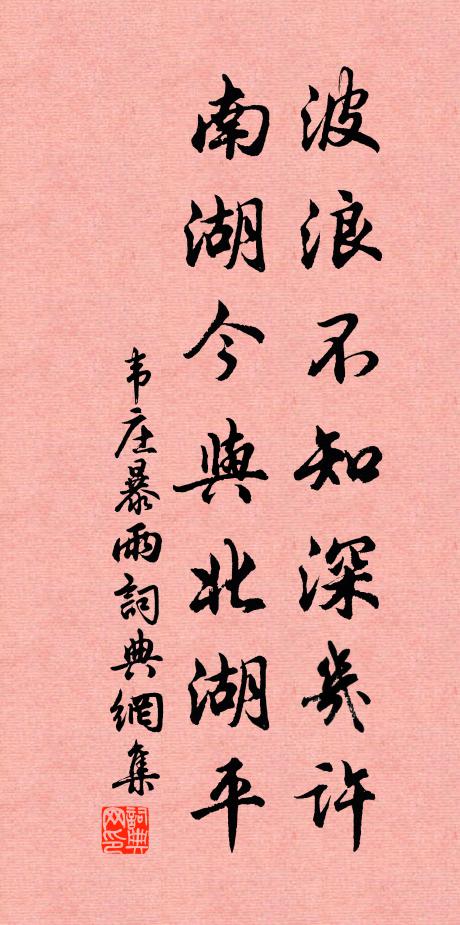 波浪不知深幾許
南湖今與北湖平
韦庄暴雨詞典網集
詞典网印